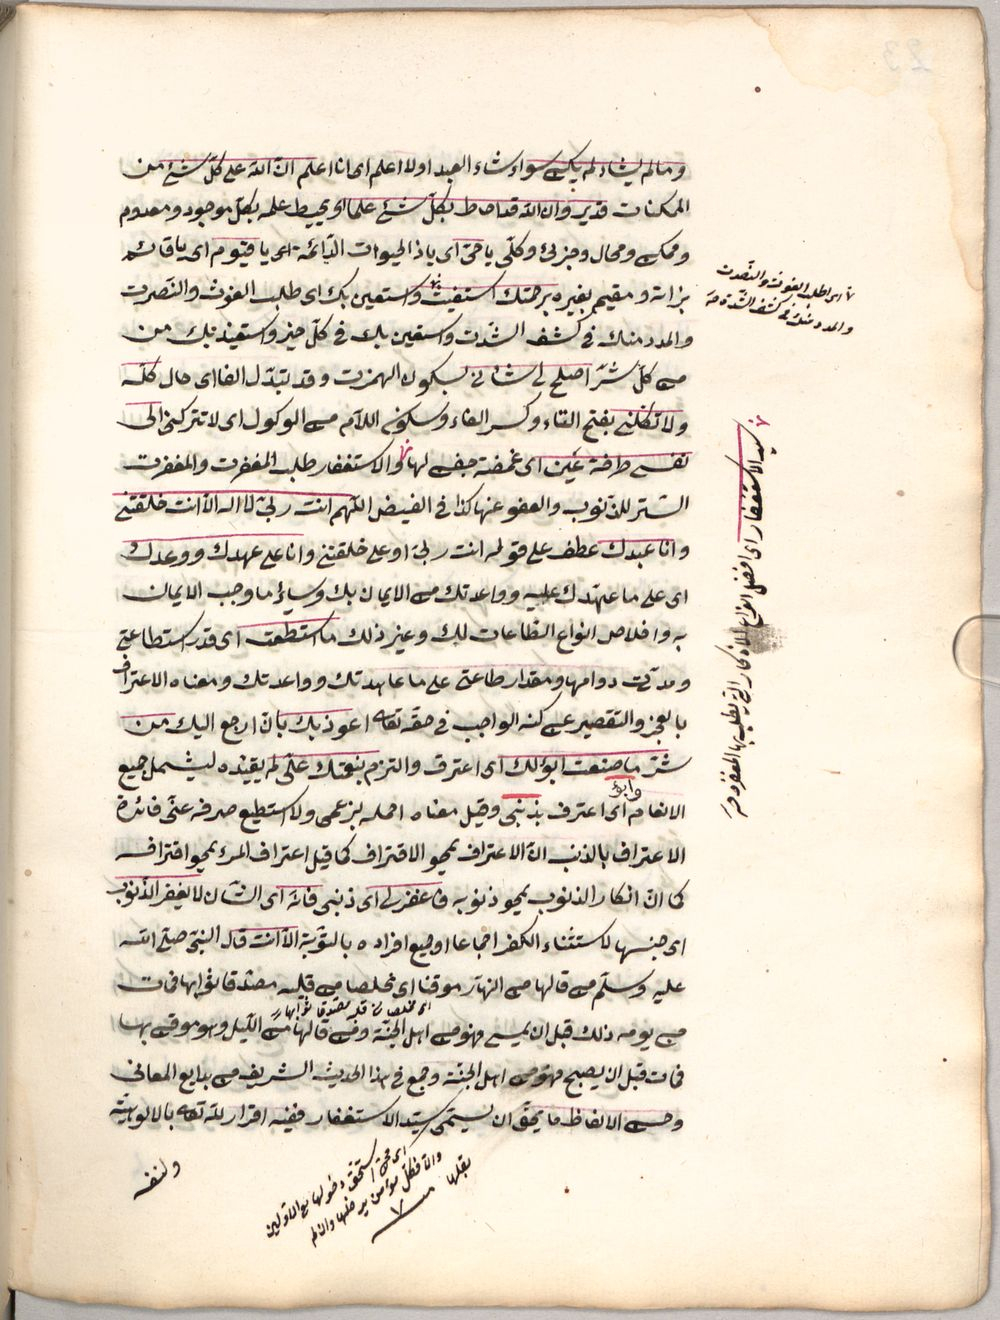 وما لم يشاء لم يكن سواء شاء العبد اولا اعلم اى انا اعلم انّ اللّه على كلّ شئ من
الممكنات قدير وان اللّه قد احاط بكلّ شئ علما اى يحيط علمه بكلّ موجود ومعدوم
وممكن ومحال وجزئ وكلّى ياحىّ اى ياذ الحيوات الدّائمة اى يا قيّوم اى يا قائم
بذاته ومقيم بغيره برحمتك استغيث واستعين بك اى طلب الغوث والنّصرت
والمدد منك فى كشف الشدّت واستعين بك فى كلّ خير واستعيذ بك من
من كلّ شرّ اصلح لى شانى بسكون الهمزت وقد يتبدّل الفا اى حال كلّه
ولا تكلنى بفتح التاء وكسر الفاء وسكون اللاّم من الوكول اى لا تتركنى الى
نفسى طرفة عين اى غمضة جفن لها والاستغفار طلب المغفرت والمغفرت
الستر للذّنوب والعفو عنها كذا فى الفيض اللّهم انت ربّى لا اله الاّ انت خلقتنى
وانا عبدك عطف على قوله انت ربّى او على خلقتنى وانا على عهدك ووعدك
اى على ما عهدك عليه وواعدتك من الايمان بك وسائر ما وجب الايمان
به واخلاص انواع الطّاعات لك وغير ذلك ما استطعت اى قدر استطاعتى
ومدّت دوامها ومقدار طاعتى على ما عاهدتك وواعدتك ومعناه الاعتراف
بالعجز والتقصير عن كنه الواجب فى حقّه تعه اعوذ بك بان ارجع اليك من
شرّ ما صنعت ابؤلك اى اعترف والتزم بنعمتك علىّ لم يقيّده ليشمل جميع
وابؤ
الانعام اى اعترف بذنبى وقيل معناه احمله بزعمى ولا استطيع صرفه عنّى فائدة
الاعتراف بالذنب انّ الاعتراف يمحو الاقتراف كما قيل اعتراف المرء يمحو اقترافه
كما انّ انكار الذنوب يمحو ذنوبه فاغفرلى اى ذنبى فانّه اى الشان لا يغفر الذّنوب
اى جنسها لاستثناء الكفر اجماعا او جميع افراده بالتوبة الاّ انت قال النبىّ صلّى اللّه
عليه وسلّم من قالها من النهار موقنا اى مخلصا من قلبه مصدّقا ثوابها فمات
من يومه ذلك قبل ان يمسى فهو من اهل الجنّة ومن قالها من اللّيل وهو موقن بها
اى مخلصا من قلبه مصدّقا ثوابها
فمات قبل ان يصبح فهو من اهل الجنّة وجمع فى هذا الحديث الشريف من بدايع المعانى
وحسن الالفاظ ما يحقّ ان يسمّى سيّد الاستغفار ففيه اقرار للّه تعه بالالوهيّة
ولنفسه
اى اطلب الغوث والنّصرت
والمدد منك فى كشف الشّدّة
سيد الاستغفار اى افضل انواع الاذكار الّتى يطلب بها المغفرة
اى فمن استحقّ دخولها مع الاوّلين
والاّ فكلّ مؤمن يدخلها وان لم
يقلها